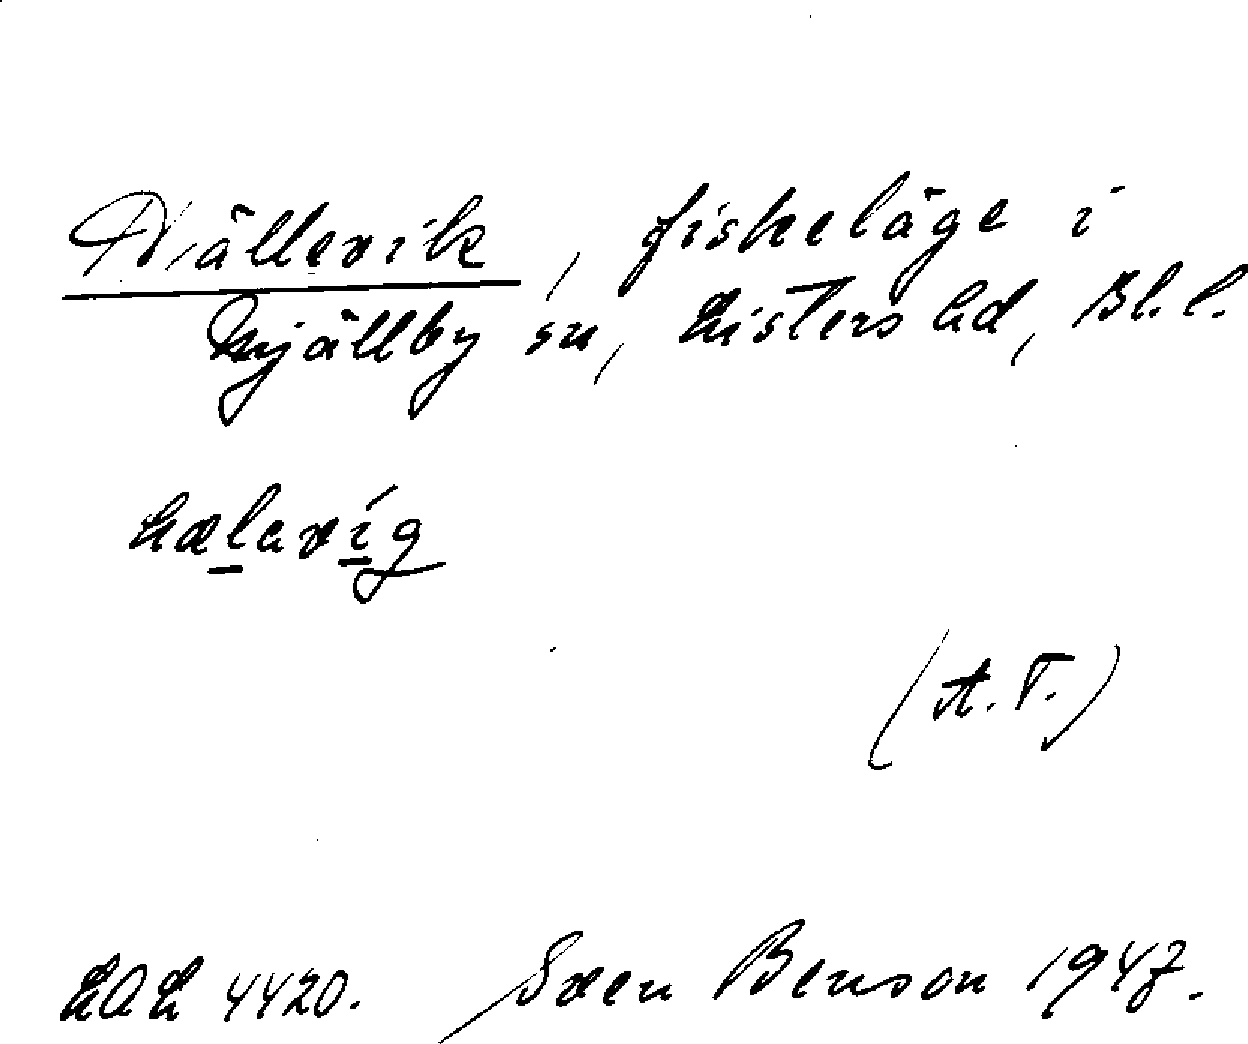 Hällevik, fiskeläge i
Mjällby sn, Listers hd, Bl. l.
hælavíg
(A.F.)
LAL 4420. Sven Benson 1947.